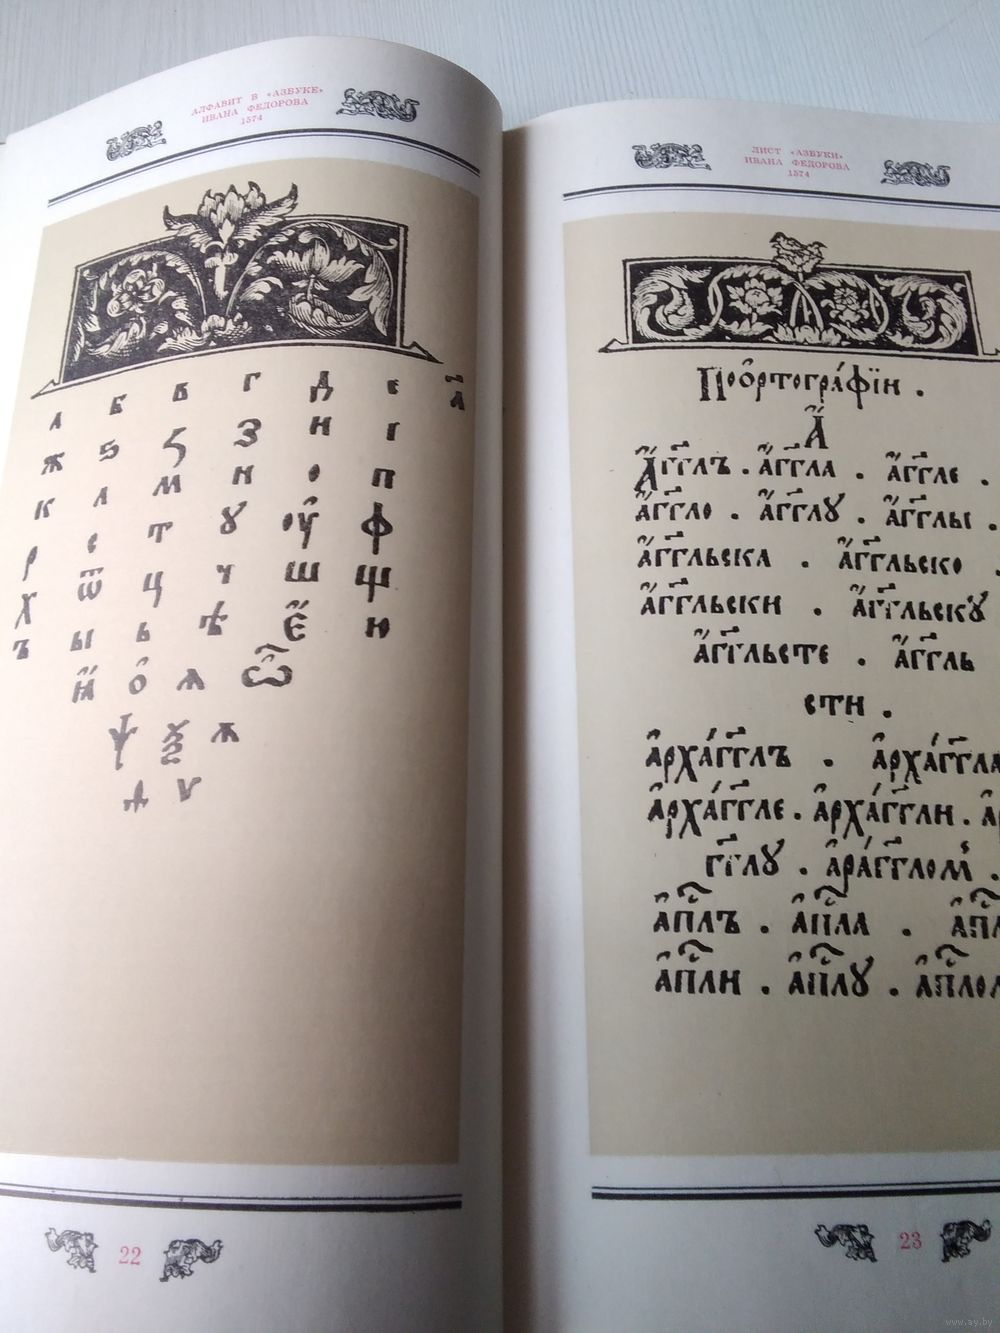 АЛФАВИТ В «АЗБУКЕ»
ИВАНА ФЕДОРОВА
1574
а б в г д е
ж ѕ ꙁ З и і
к л м н о п
р с т ꙋ оу҆ ф
х ѿ ц ч ш щ
ъ ы ь ѣ є҆́ ю
и҆́ о҆ ѧ ѽ
ѱ ѯ ѫ
ѵ
22
ЛИСТ «АЗБУКИ»
ИВАНА ФЕДОРОВА
1574
По о҆ртогра́фїи .
А҆́
А҆́гг҃лъ . а҆́гг҃ла . а҆́гг҃ле .
а҆́гг҃ло . а҆́гг҃лꙋ . а҆́гг҃лы .
а҆́гг҃льска . а҆́гг҃льско .
а҆́гг҃льски . а҆́гг҃льскꙋ
а҆́гг҃льсте . а҆́гг҃ль
сти .
а҆рха́гг҃лъ . а҆рха́гг҃ла
а҆рха́гг҃ле . а҆рха́гг҃ли .
гг҃лꙋ . а҆ра́гг҃лом .
а҆пⷭ҇лъ . а҆пⷭ҇ла .
а҆пⷭ҇ли . а҆пⷭ҇лꙋ .
23
www.ay.by